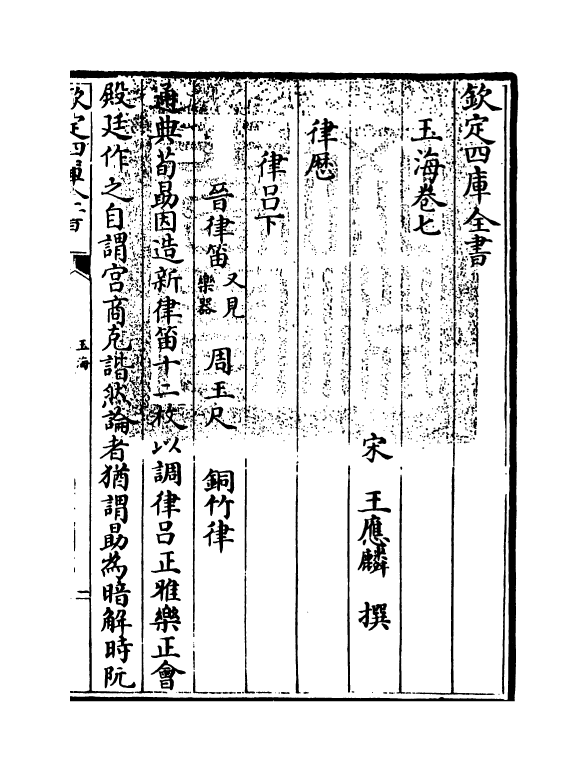 欽定四庫全書
玉海卷七
宋　王應麟　撰
律厯
律吕下
晉律笛又見樂器　周玉尺　銅竹律
通典荀勗因造新律笛十二枚以調律吕正雅樂正會
殿廷作之自謂宫商克諧然論者猶謂勗為暗解時阮
欽定四庫全書
玉海
二